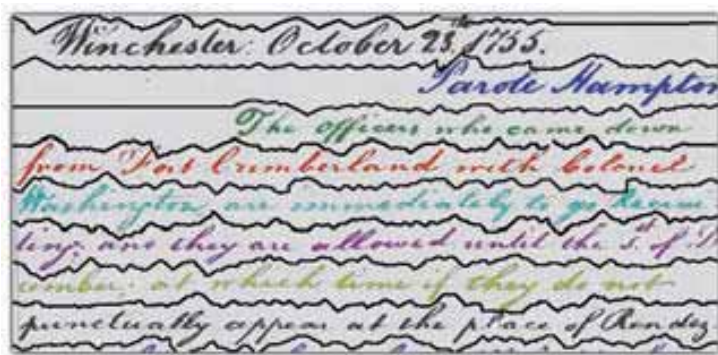 Winchester: October 28th, 1755.
Parole Hampton
The Officers who came down
from Fort Cumberland with Colonel
Washington, are immediately to go Recrui
ting; and they are allowed until the 1st. of De
cember; at which time if they do not
punctually appear at the place of Rendez